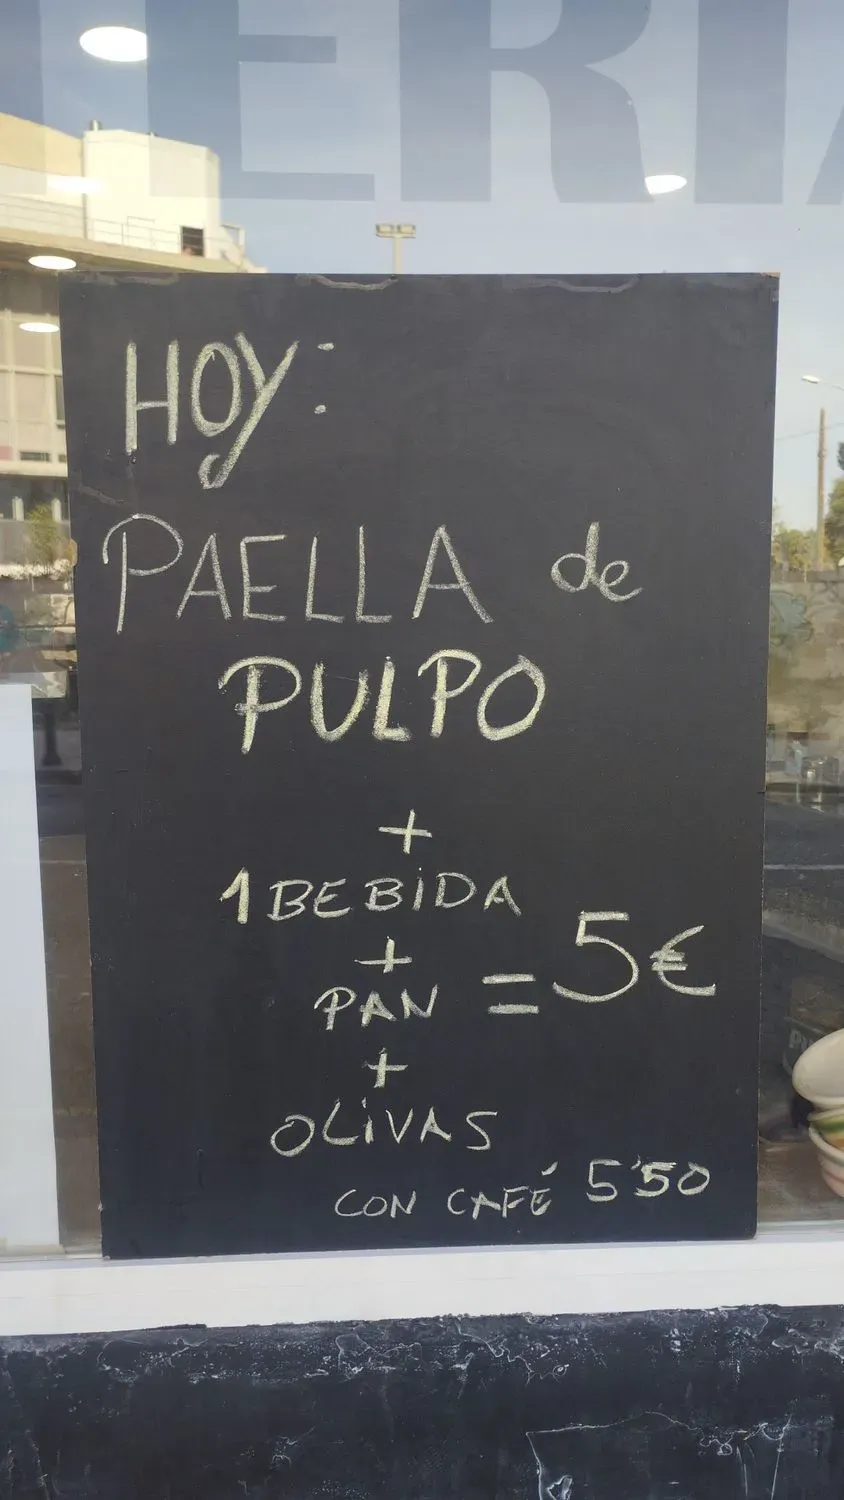 ERIA
HOY:
PAELLA de
PULPO
+
1 BEBiDA
+
PAN = 5€
+
OLiVAS
CON CAFÉ 5'50